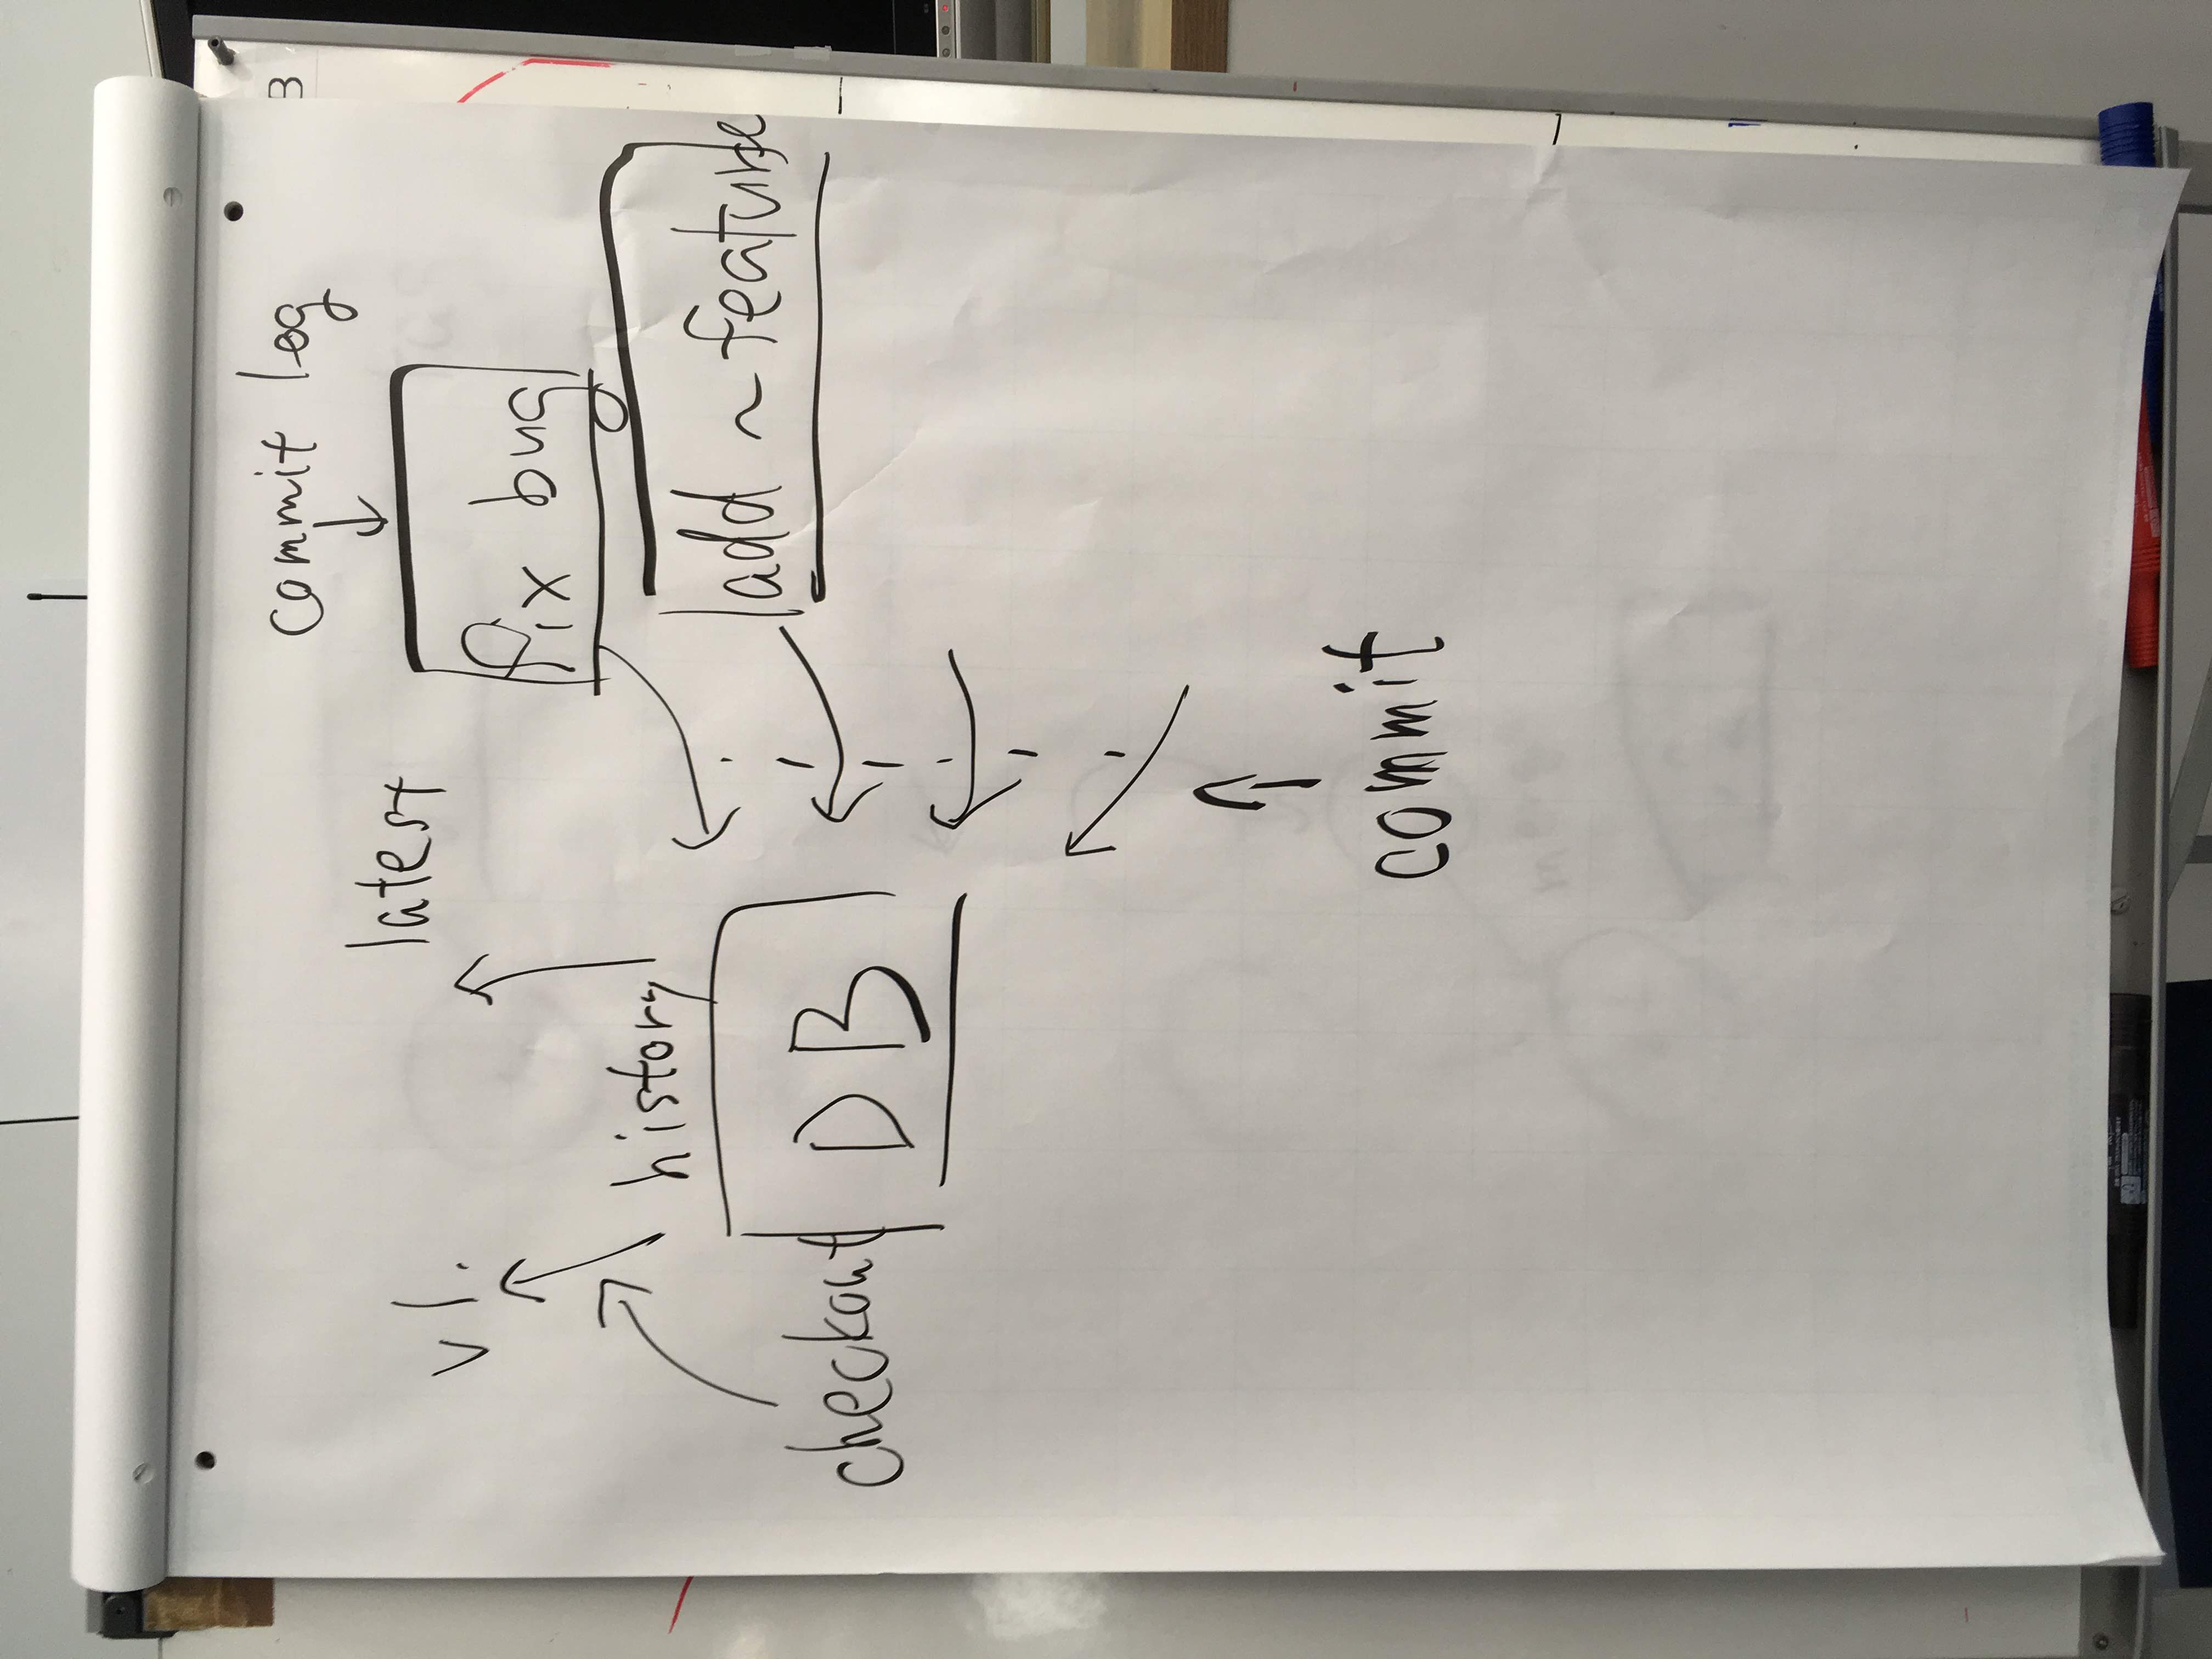 commit log
latest
v1.
fix bug
history
add ~ feature
checkout
DB
commit
B